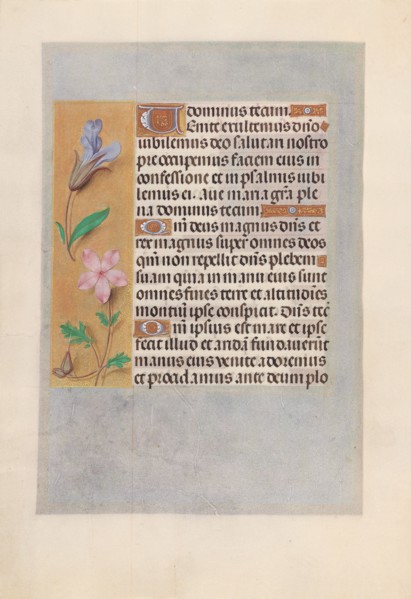 dominus tecum.
Venite exultemus dño
iubilemus deo salutari nostro
preoccupemus faciem eius in
confessione et in psalmis iubi
lemus ei. Aue maria grã ple
na dominus tecum.
Qm̃ deus magnus dñs et
rex magnus super omnes deos
qm̃ non repellit dñs plebem
suam quia in manu eius sunt
omnes fines terre et altitudĩes
montiũ ipse conspicit. Dñs tecũ
Qm̃ ipsius est mare et ipse
fecit illud et aridã fundauerũt
manus eius venite adoremus
et procidamus ante deum plo